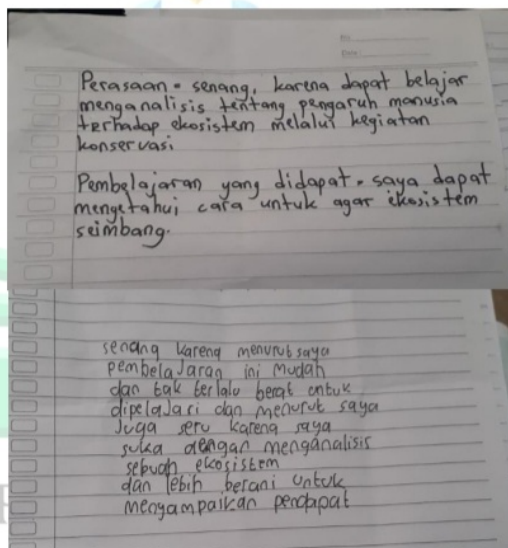 Perasaan = senang, karena dapat belajar
menganalisis tentang pengaruh manusia
terhadap ekosistem melalui kegiatan
konservasi
Pembelajaran yang didapat = saya dapat
mengetahui cara untuk agar ekosistem
seimbang.
senang karena menurut saya
pembelajaran ini mudah
dan tak terlalu berat untuk
dipelajari dan menurut saya
Juga seru karena saya
suka dengan menganalisis
sebuah ekosistem
dan lebih berani untuk
menyampaikan pendapat